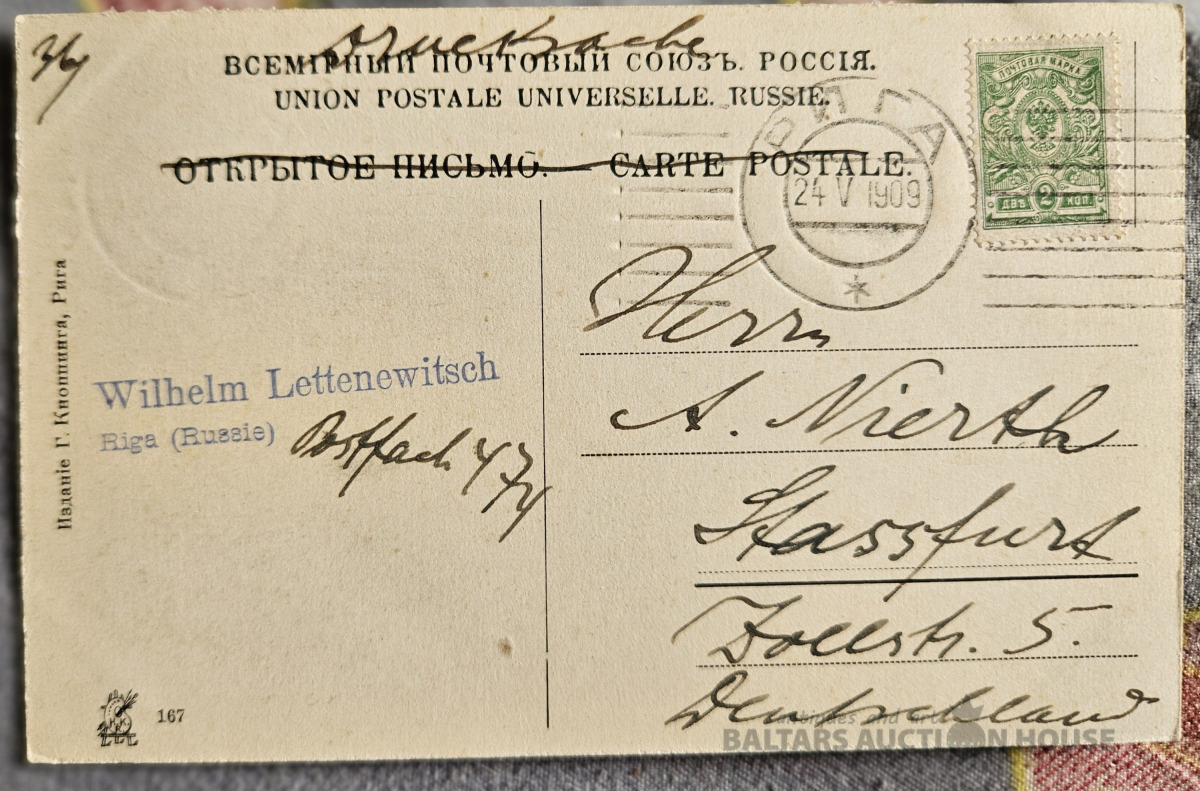 Drucksache
ВСЕМІРНЫЙ ПОЧТОВЫЙ СОЮЗЪ. РОССІЯ.
UNION POSTALE UNIVERSELLE. RUSSIE.
ОТКРЫТОЕ ПИСЬМО. — CARTE POSTALE.
ПОЧТОВАЯ МАРКА
ДВѢ 2 КОП.
РИГА
24 V 1909
Herrn
A. Nierth
Stassfurt
Zollstr. 5.
Deutschland
Wilhelm Lettenewitsch
Riga (Russie) Postfach 474
Изданіе Г. Кноппинга, Рига
167
antiques and art
BALTARS AUCTION HOUSE